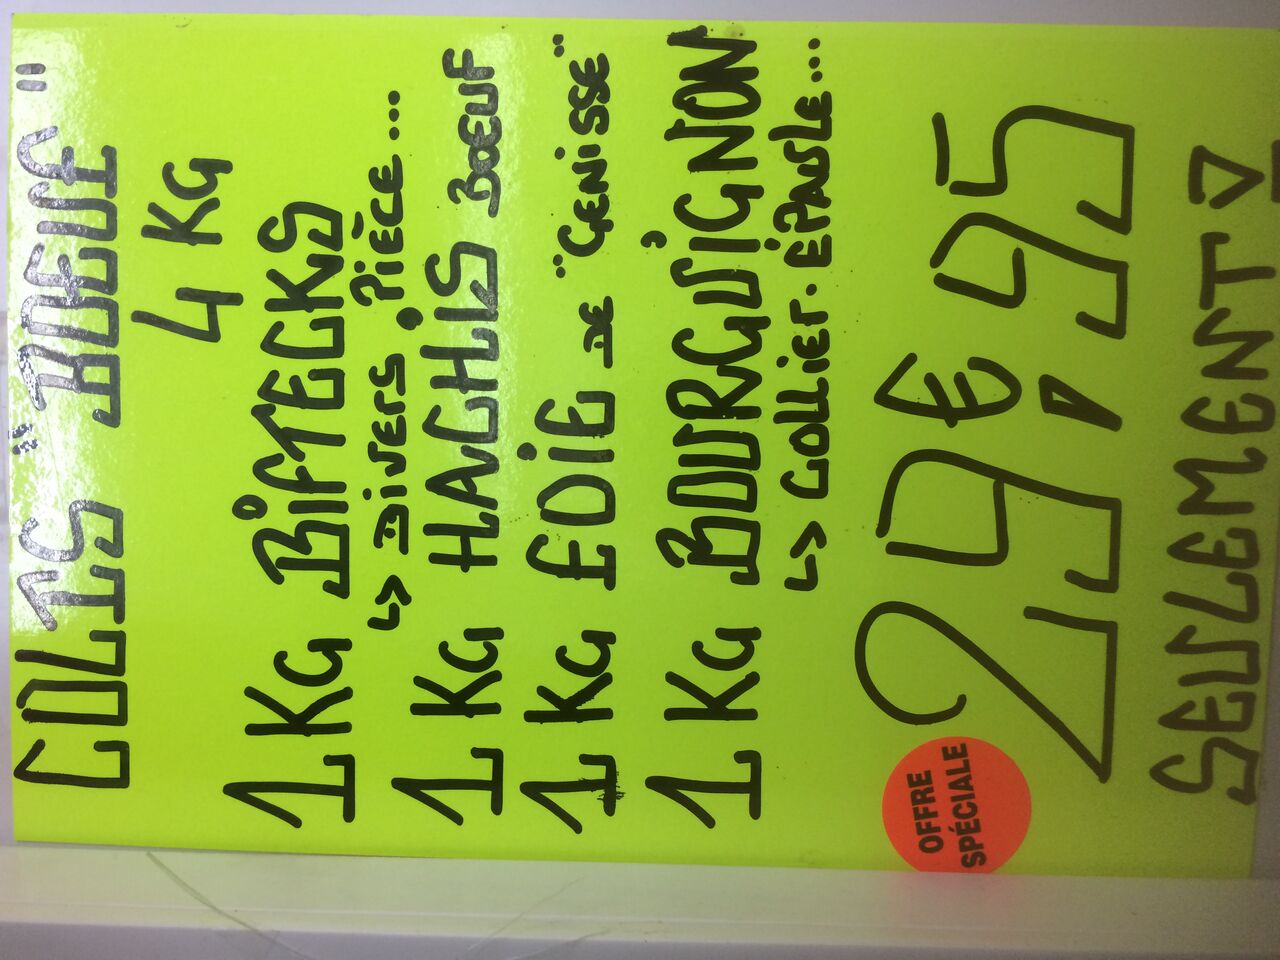 COLIS "BOEUF"
4 KG
1 KG BIFTECKS
↳ DIVERS, PIÈCE...
1 KG HACHIS BOEUF
1 KG FOIE DE "GENISSE"
1 KG BOURGUIGNON
↳ COLLIER. ÉPAULE...
29€,95
OFFRE
SPÉCIALE
SEULEMENT